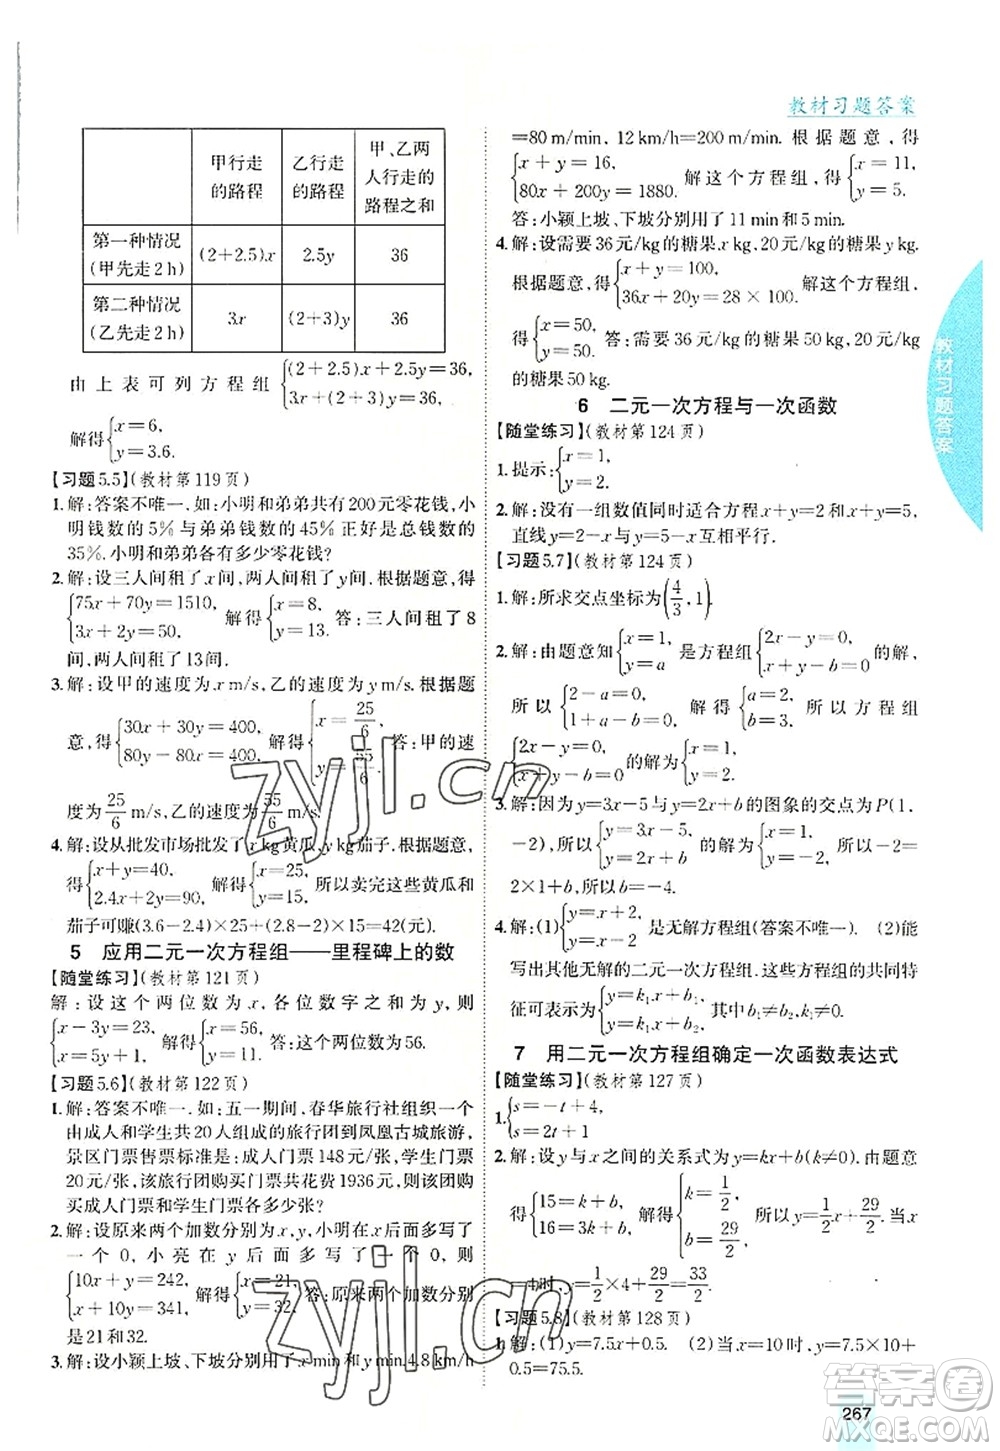 教材习题答案
甲行走的路程 乙行走的路程 甲、乙两人行走的路程之和
第一种情况(甲先走2 h) (2+2.5)x 2.5y 36
第二种情况(乙先走2 h) 3x (2+3)y 36
由上表可列方程组{(2+2.5)x+2.5y=36, 3x+(2+3)y=36,
解得{x=6, y=3.6.
【习题5.5】(教材第119页)
1.解:答案不唯一.如:小明和弟弟共有200元零花钱,小
明钱数的5%与弟弟钱数的45%正好是总钱数的
35%.小明和弟弟各有多少零花钱?
2.解:设三人间租了x间,两人间租了y间.根据题意,得
{75x+70y=1510, 3x+2y=50, 解得{x=8, y=13. 答:三人间租了8
间,两人间租了13间.
3.解:设甲的速度为x m/s,乙的速度为y m/s.根据题
意,得{30x+30y=400, 80y-80x=400, 解得{x=25/6, y=55/6. 答:甲的速
度为25/6 m/s,乙的速度为55/6 m/s.
4.解:设从批发市场批发了x kg黄瓜,y kg茄子.根据题意,
得{x+y=40, 2.4x+2y=90, 解得{x=25, y=15. 所以卖完这些黄瓜和
茄子可赚(3.6-2.4)×25+(2.8-2)×15=42(元).
5 应用二元一次方程组——里程碑上的数
【随堂练习】(教材第121页)
解:设这个两位数为x,各位数字之和为y,则
{x-3y=23, x=5y+1, 解得{x=56, y=11. 答:这个两位数为56.
【习题5.6】(教材第122页)
1.解:答案不唯一.如:五一期间,春华旅行社组织一个
由成人和学生共20人组成的旅行团到凤凰古城旅游,
景区门票售票标准是:成人门票148元/张,学生门票
20元/张,该旅行团购买门票共花费1936元,则该团购
买成人门票和学生门票各多少张?
2.解:设原来两个加数分别为x,y,小明在x后面多写了
一个0,小亮在y后面多写了一个0,得
{10x+y=242, x+10y=341, 解得{x=21, y=32. 答:原来两个加数分别
是21和32.
3.解:设小颖上坡、下坡分别用了x min和y min,4.8 km/h
=80 m/min, 12 km/h=200 m/min. 根据题意,得
{x+y=16, 80x+200y=1880. 解这个方程组,得{x=11, y=5.
答:小颖上坡、下坡分别用了11 min和5 min.
4.解:设需要36元/kg的糖果x kg,20元/kg的糖果y kg.
根据题意,得{x+y=100, 36x+20y=28×100. 解这个方程组,
得{x=50, y=50. 答:需要36元/kg的糖果50 kg,20元/kg
的糖果50 kg.
6 二元一次方程与一次函数
【随堂练习】(教材第124页)
1.提示:{x=2, y=2.
2.解:没有一组数值同时适合方程x+y=2和x+y=5,
直线y=2-x与y=5-x互相平行.
【习题5.7】(教材第124页)
1.解:所求交点坐标为(4/3,1).
2.解:由题意知{x=1, y=a 是方程组{2x-y=0, x+b=y 的解,
所以{2-a=0, 1+a-b=0. 解得{a=2, b=3. 所以方程组
3.解:因为y=3x-5与y=2x+b的图象的交点为P(1,
-2),所以{y=3x-5, y=2x+b 的解为{x=1, y=-2. 所以-2=
2×1+b,所以b=-4.
4.解:(1){x+y=2, 2x+2y=3 是无解方程组(答案不唯一). (2)能
写出其他无解的二元一次方程组.这些方程组的共同特
征可表示为{y=k₁x+b₁, y=k₁x+b₂, 其中b₁≠b₂,k₁≠0.
7 用二元一次方程组确定一次函数表达式
【随堂练习】(教材第127页)
1.{s=-t+4, s=5t
2.解:设y与x之间的关系式为y=kx+b(k≠0).由题意
得{15=k+b, 16=3k+b, 解得{k=1/2, b=29/2. 所以y=1/2x+29/2. 当x
=4时,y=1/2×4+29/2=33/2.
【习题5.8】(教材第128页)
1.解:(1)y=7.5x+0.5. (2)当x=10时,y=7.5×10+
0.5=75.5.
教材习题答案
zyjl.cn
zyjl.cn
答案圈
MXQE.COM
267